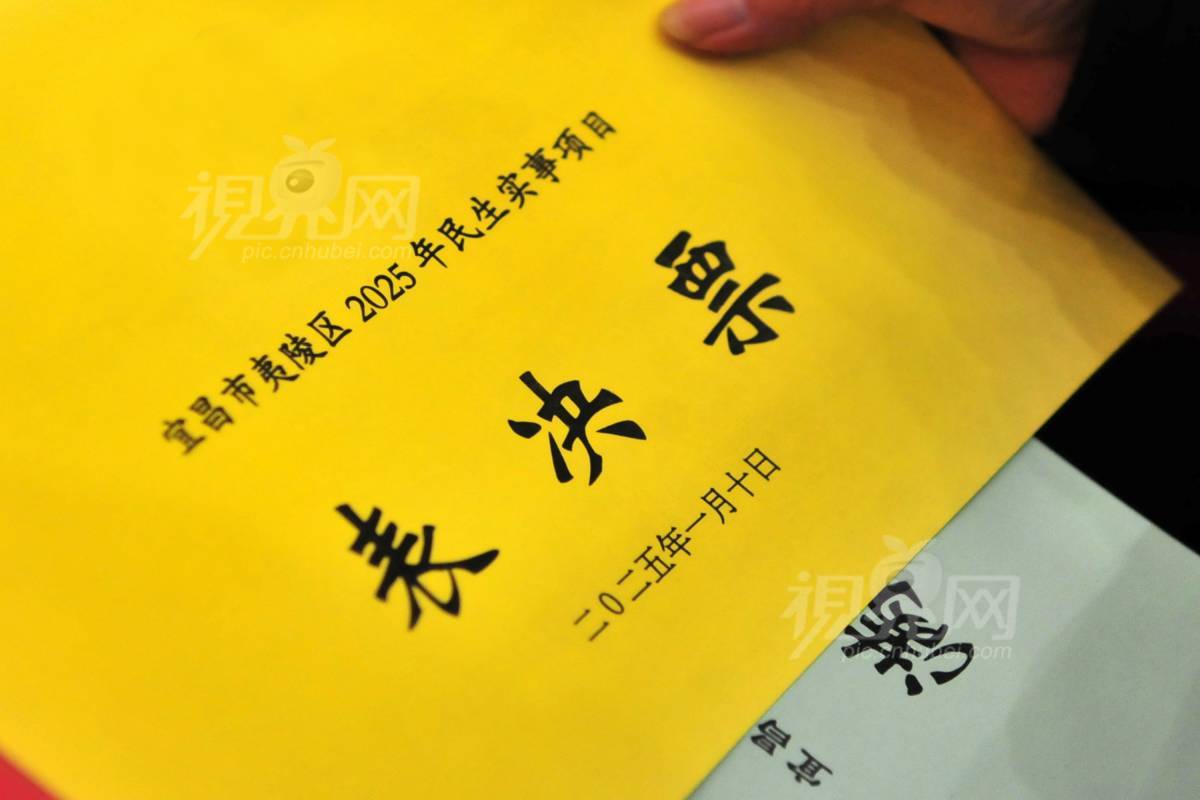 宜昌市夷陵区2025年民生实事项目
表决票
二〇二五年一月十日
宜昌
視界网
pic.cnhubei.com
視界网
pic.cnhubei.com